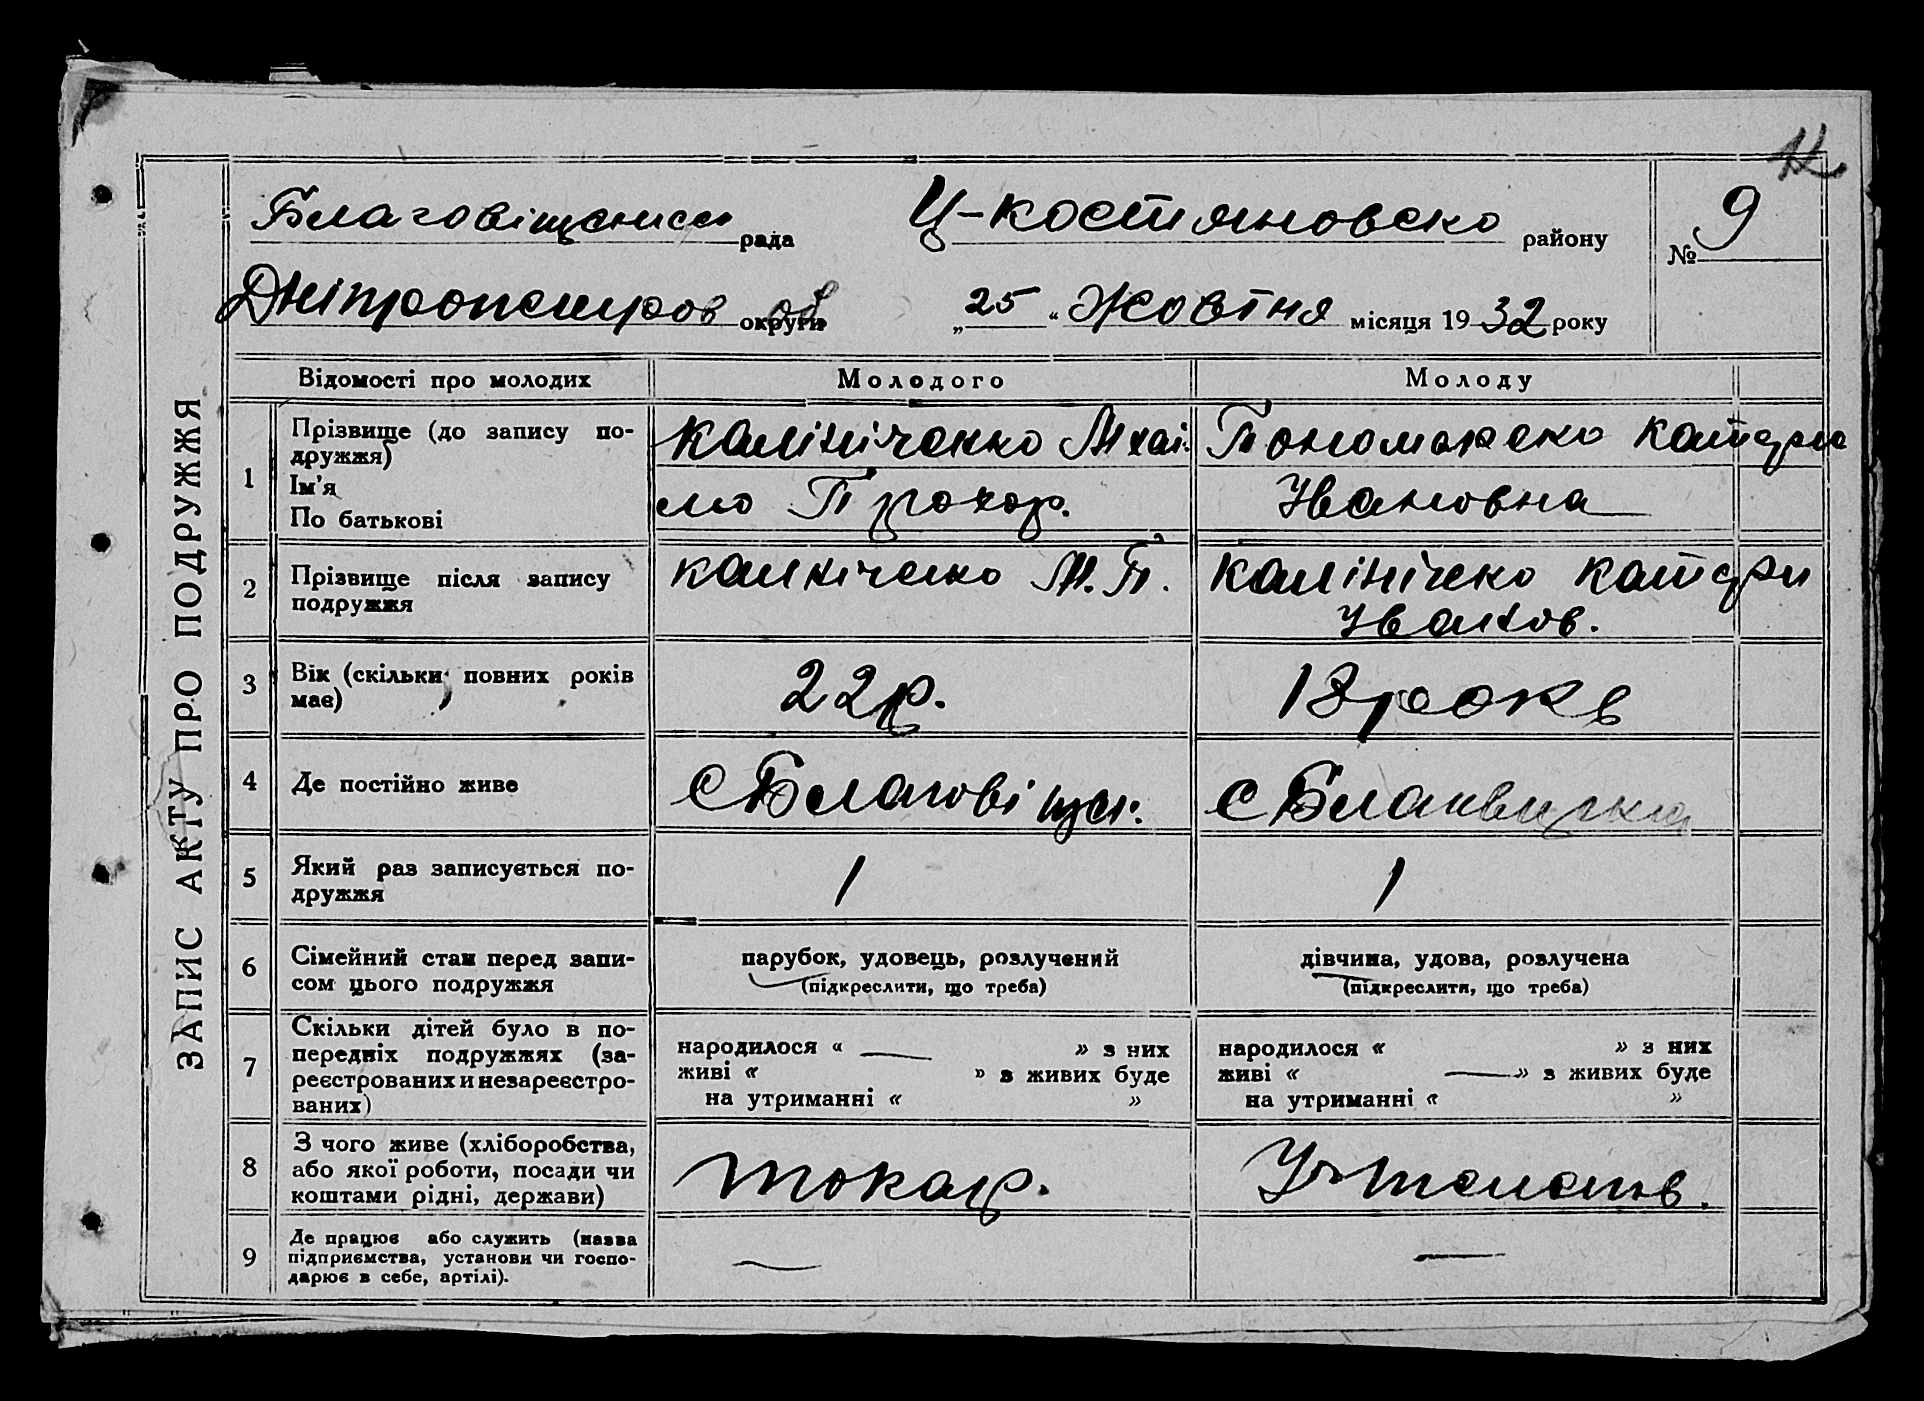 Благовіщенись рада Ц-костяновско району № 9
Дніпропетров округи об „25“ Жовтня місяця 1932 року
ЗАПИС АКТУ ПРО ПОДРУЖЖЯ
Відомості про молодих Молодого Молоду
1 Прізвище (до запису по-
дружжя)
Ім'я
По батькові
Калініченко Міхаі-
ло Прохор.
Пономаренко Катерина
Івановна
2 Прізвище після запису
подружжя
Калініченко М.П.
Калініченко Катери
Іванов.
3 Вік (скільки повних років
має)
22 р.
18 років
4 Де постійно живе
с Благовіщен.
с Благовіщенка
5 Який раз записується по-
дружжя
1
1
6 Сімейний стан перед запи-
сом цього подружжя
парубок, удовець, розлучений
(підкреслити, що треба)
дівчина, удова, розлучена
(підкреслити, що треба)
7 Скільки дітей було в по-
передніх подружжях (за-
реєстрованих и незареєстро-
ваних)
народилося « — » з них
живі « » з живих буде
на утриманні « »
народилося « » з них
живі « — » з живих буде
на утриманні « »
8 З чого живе (хліборобства,
або якої роботи, посади чи
коштами рідні, держави)
токар.
9 Де працює або служить (назва
підприємства, установи чи госпо-
дарює в себе, артілі).
—
—